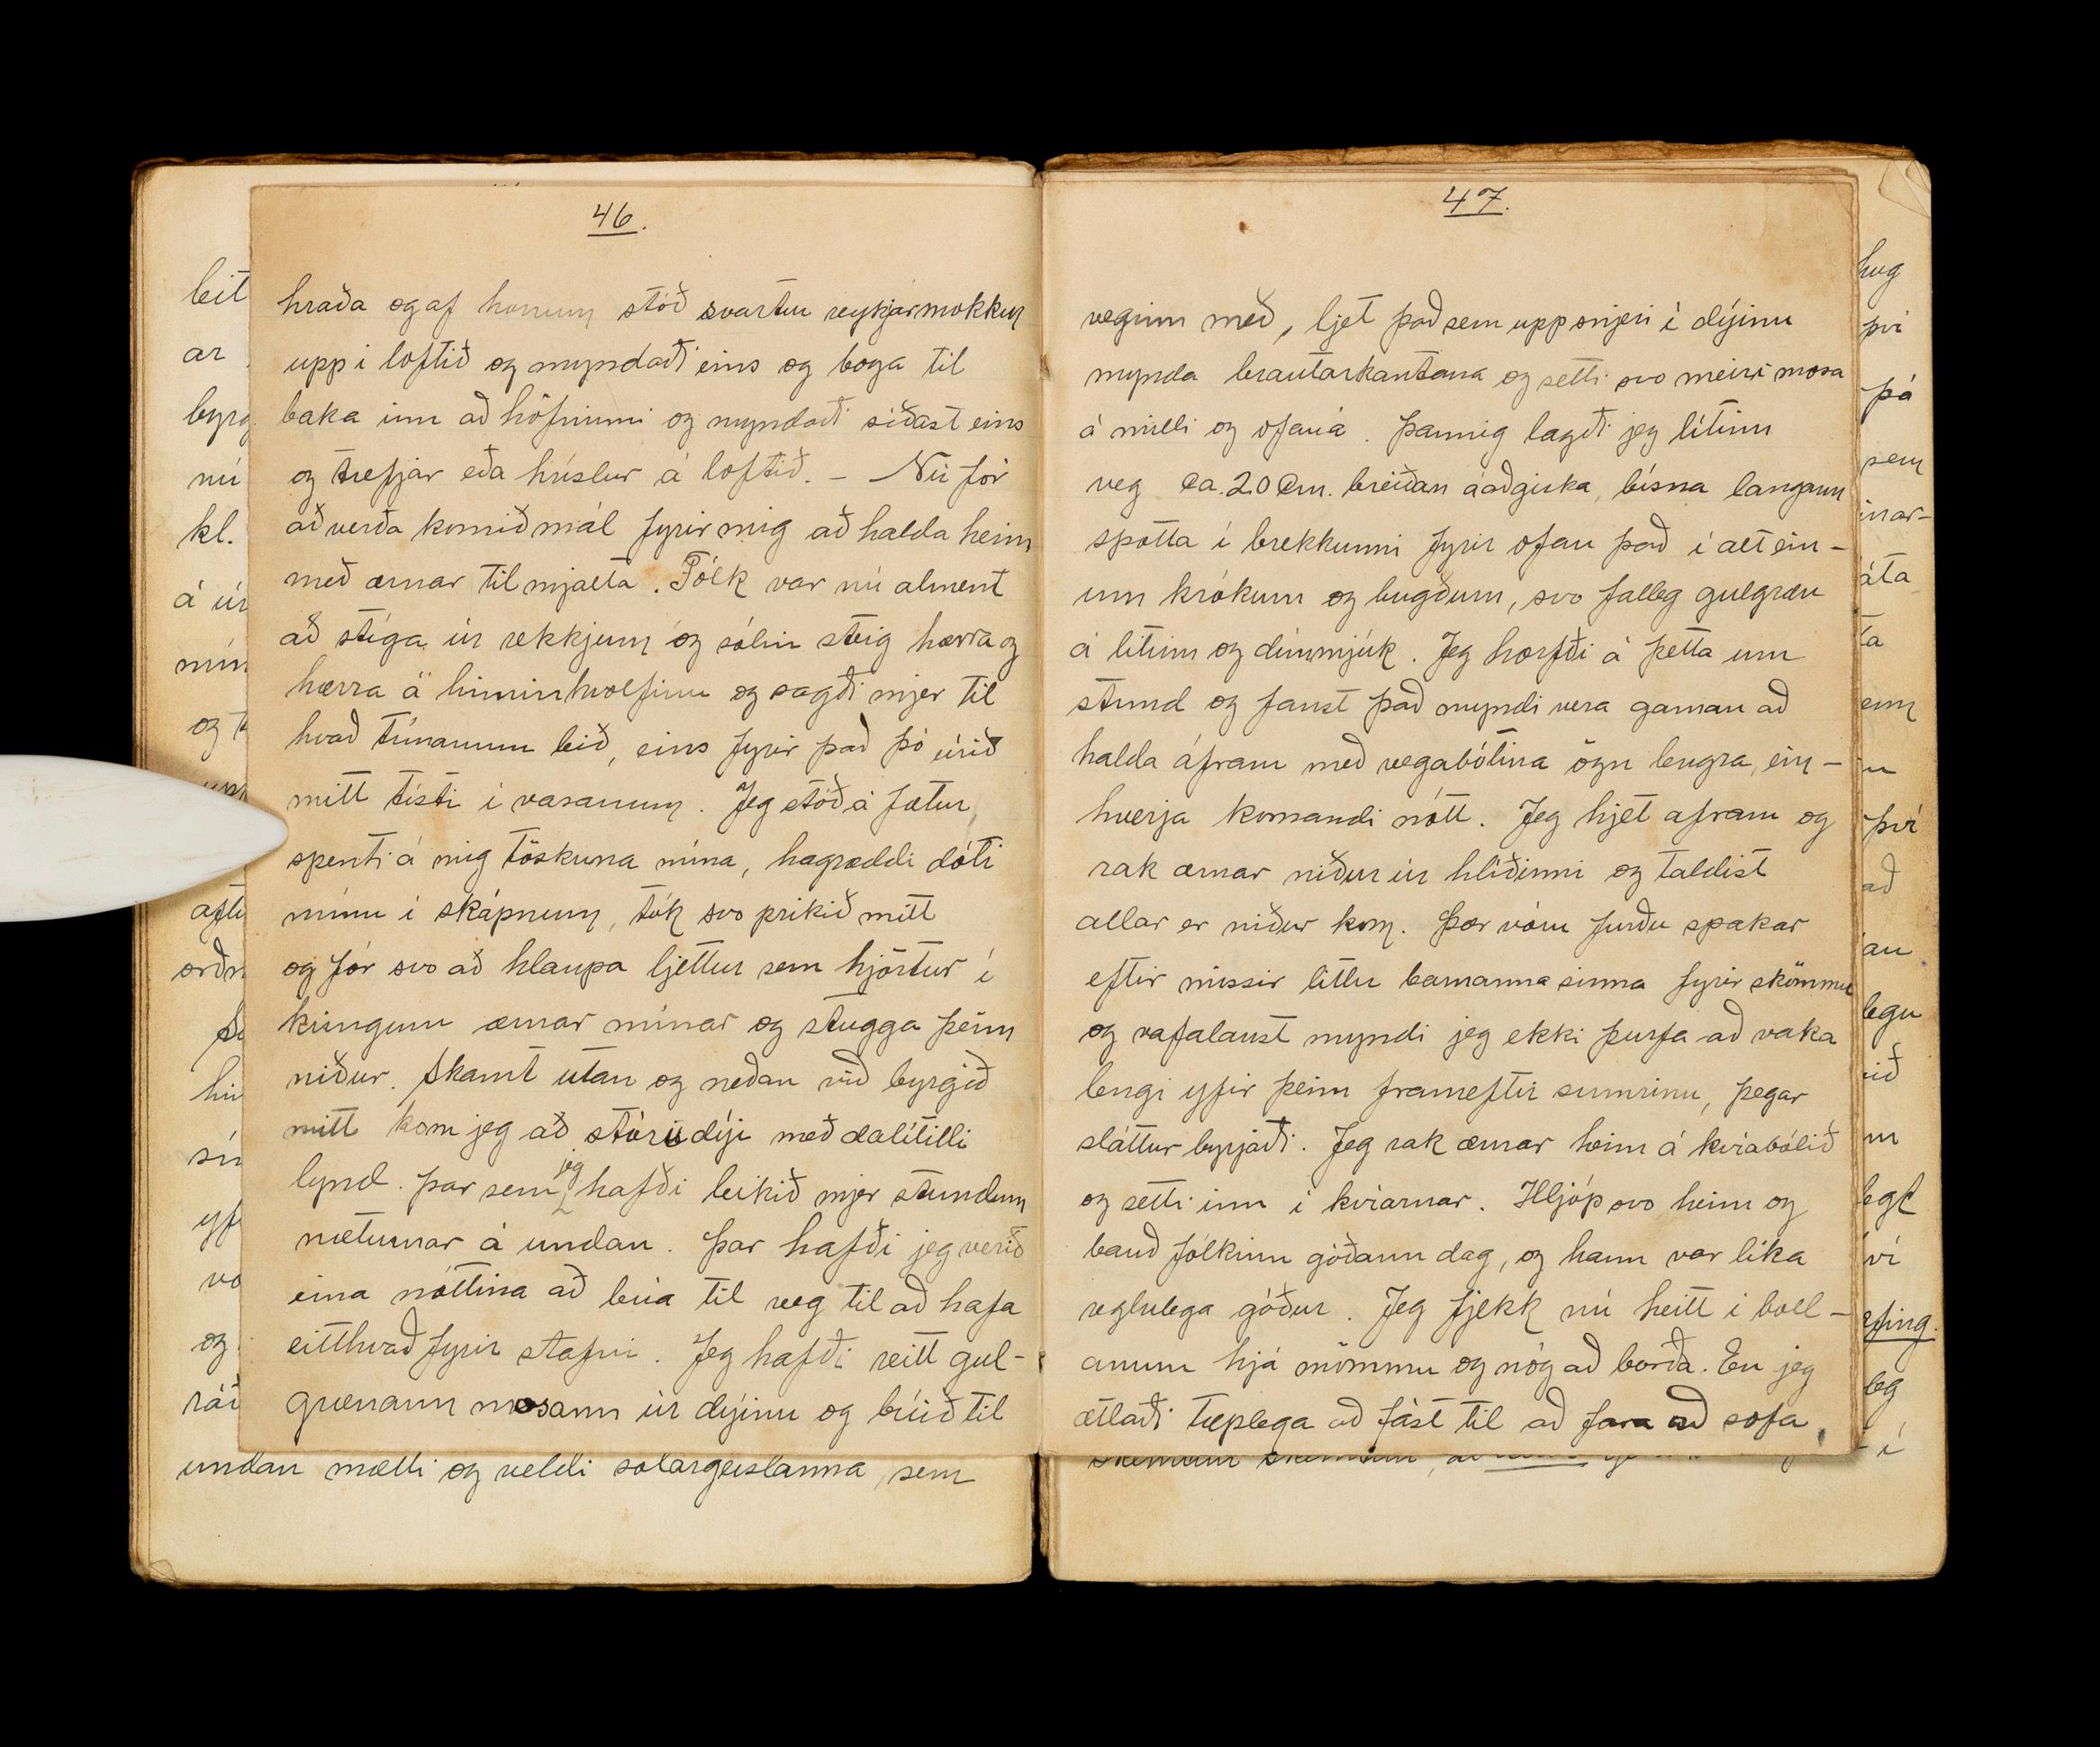 46.
hraða og af honum stóð svartur reykjarmokkur
upp i loftið og myndaði eins og boga til
baka inn að höfninni og myndaði síðast eins
og trefjar eða húslur á loftið. - Nú fór
að verða komið mál fyrir mig að halda heim
með ærnar til mjalta. Fólk var nú alment
að stíga úr rekkjum og sólin steig hærra og
hærra á himinhvolfinu og sagði mjer til
hvað tímanum leið, eins fyrir það þó úrið
mitt tísti í vasanum. Jeg stóð á fætur,
spenti á mig töskuna mína, hagræddi dóti
mínu í skápnum, tók svo prikið mitt
og fór svo að hlaupa ljettur sem hjörtur í
kringum ærnar mínar og stugga þeim
niður. Skamt utan og neðan við byrgið
mitt kom jeg að stóru dýi með dalítilli
lynd. þar sem jeg hafði leikið mjer stundum
næturnar á undan. þar hafði jeg verið
eina nóttina að búa til veg til að hafa
eitthvað fyrir stafni. Jeg hafði reitt gul-
grænann mosann úr dýinu og búið til
undan mætti og veldi sólargeislanna, sem
47.
veginn með, ljet það sem upp snjeri í dýinu
mynda brautarkantana og setti svo meiri mosa
á milli og ofaná. Þannig lagði jeg lítinn
veg ca. 20 cm. breiðan áaðgiska, bísna langann
spotta í brekkunni fyrir ofan það í alt ein-
um krókum og bugðum, svo falleg gulgræn
á litinn og dúnmjúk. Jeg horfði á þetta um
stund og fanst það myndi vera gaman að
halda áfram með vegabótina ögn lengra, ein-
hverja komandi nótt. Jeg hjelt afram og
rak ærnar niður úr hlíðinni og taldist
allar er niður kom. Þær vóru furðu spakar
eftir missir litlu barnanna sinna fyrir skömmu
og vafalaust myndi jeg ekki þurfa að vaka
lengi yfir þeim frameftir sumrinu, þegar
sláttur byrjaði. Jeg rak ærnar heim á kvíabólið
og setti inn i kvíarnar. Hljóp svo heim og
bauð fólkinu góðann dag, og hann var líka
reglulega góður. Jeg fjekk nú heitt í boll-
anum hjá mömmu og nóg að borða. En jeg
ætlaði tæplega að fást til að fara að sofa.